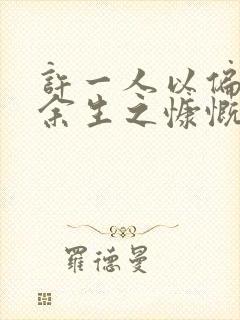 許一人以偏
余生之慷慨
羅德曼